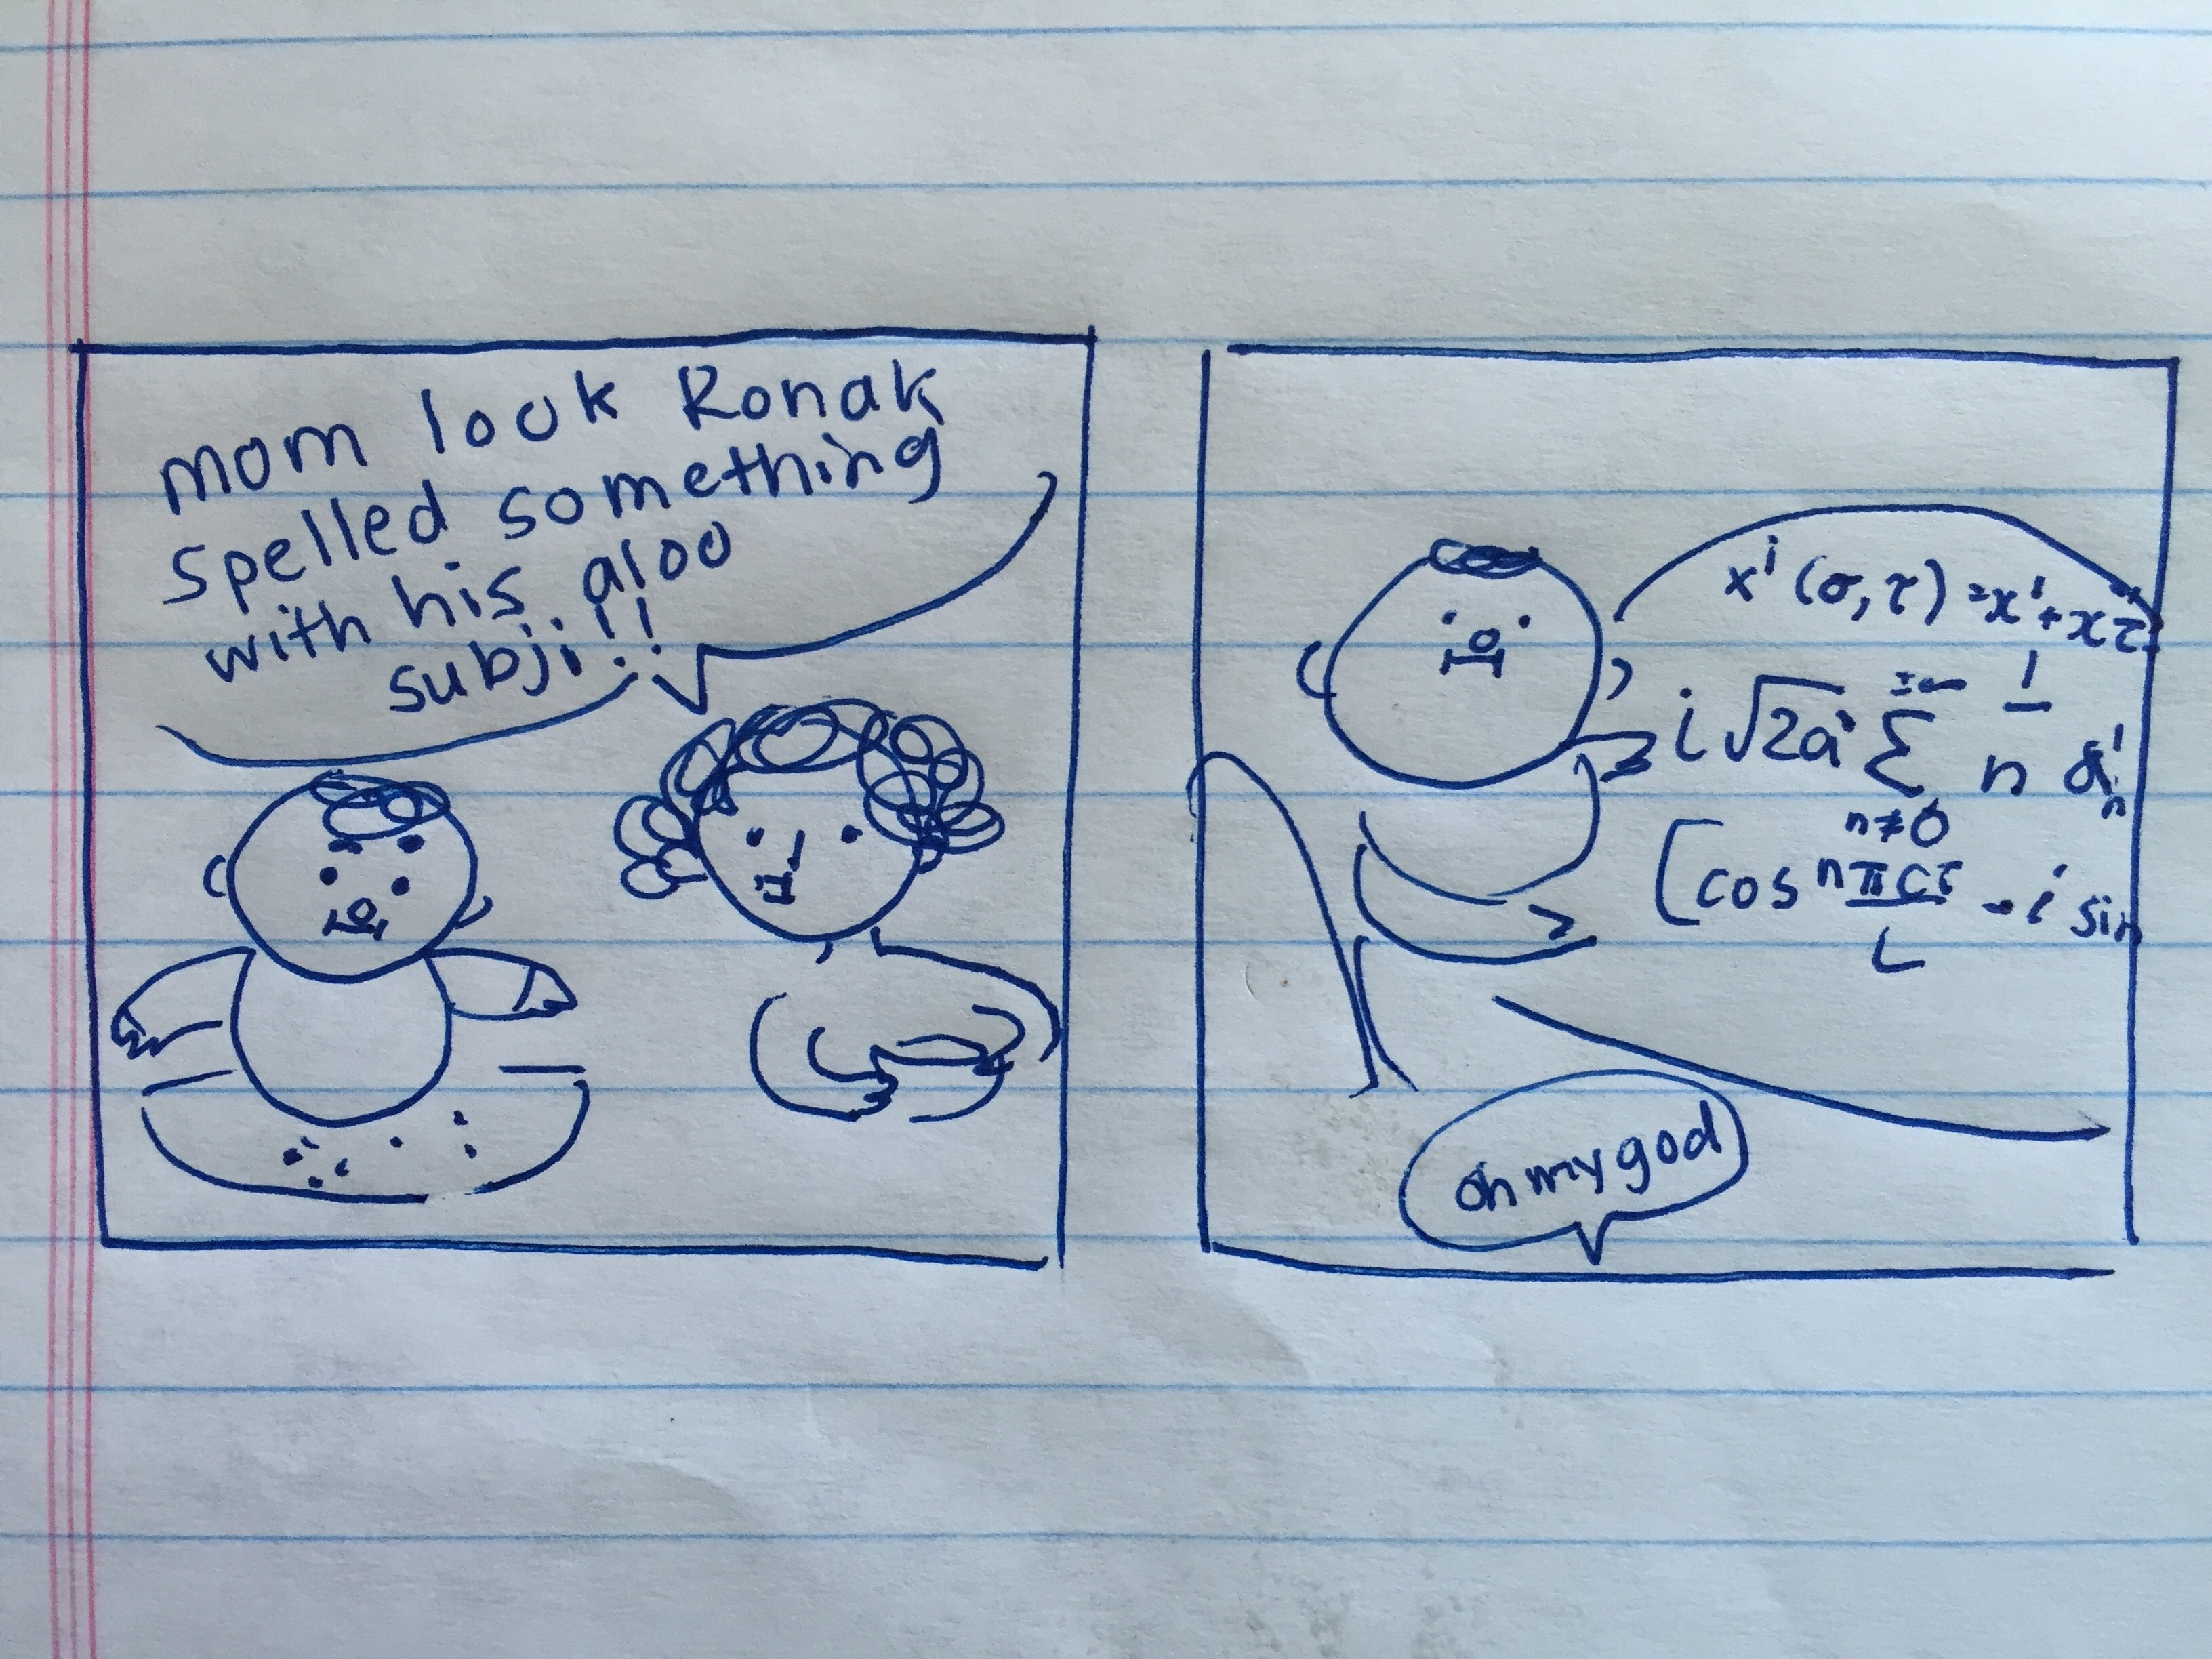 mom look Ronak
spelled something
with his aloo
subji!!
xⁱ(σ,τ) = xⁱ + xτ
i√2α' Σ 1/n αⁱₙ
n≠0
[cos nπcτ/L - i sin
oh my god